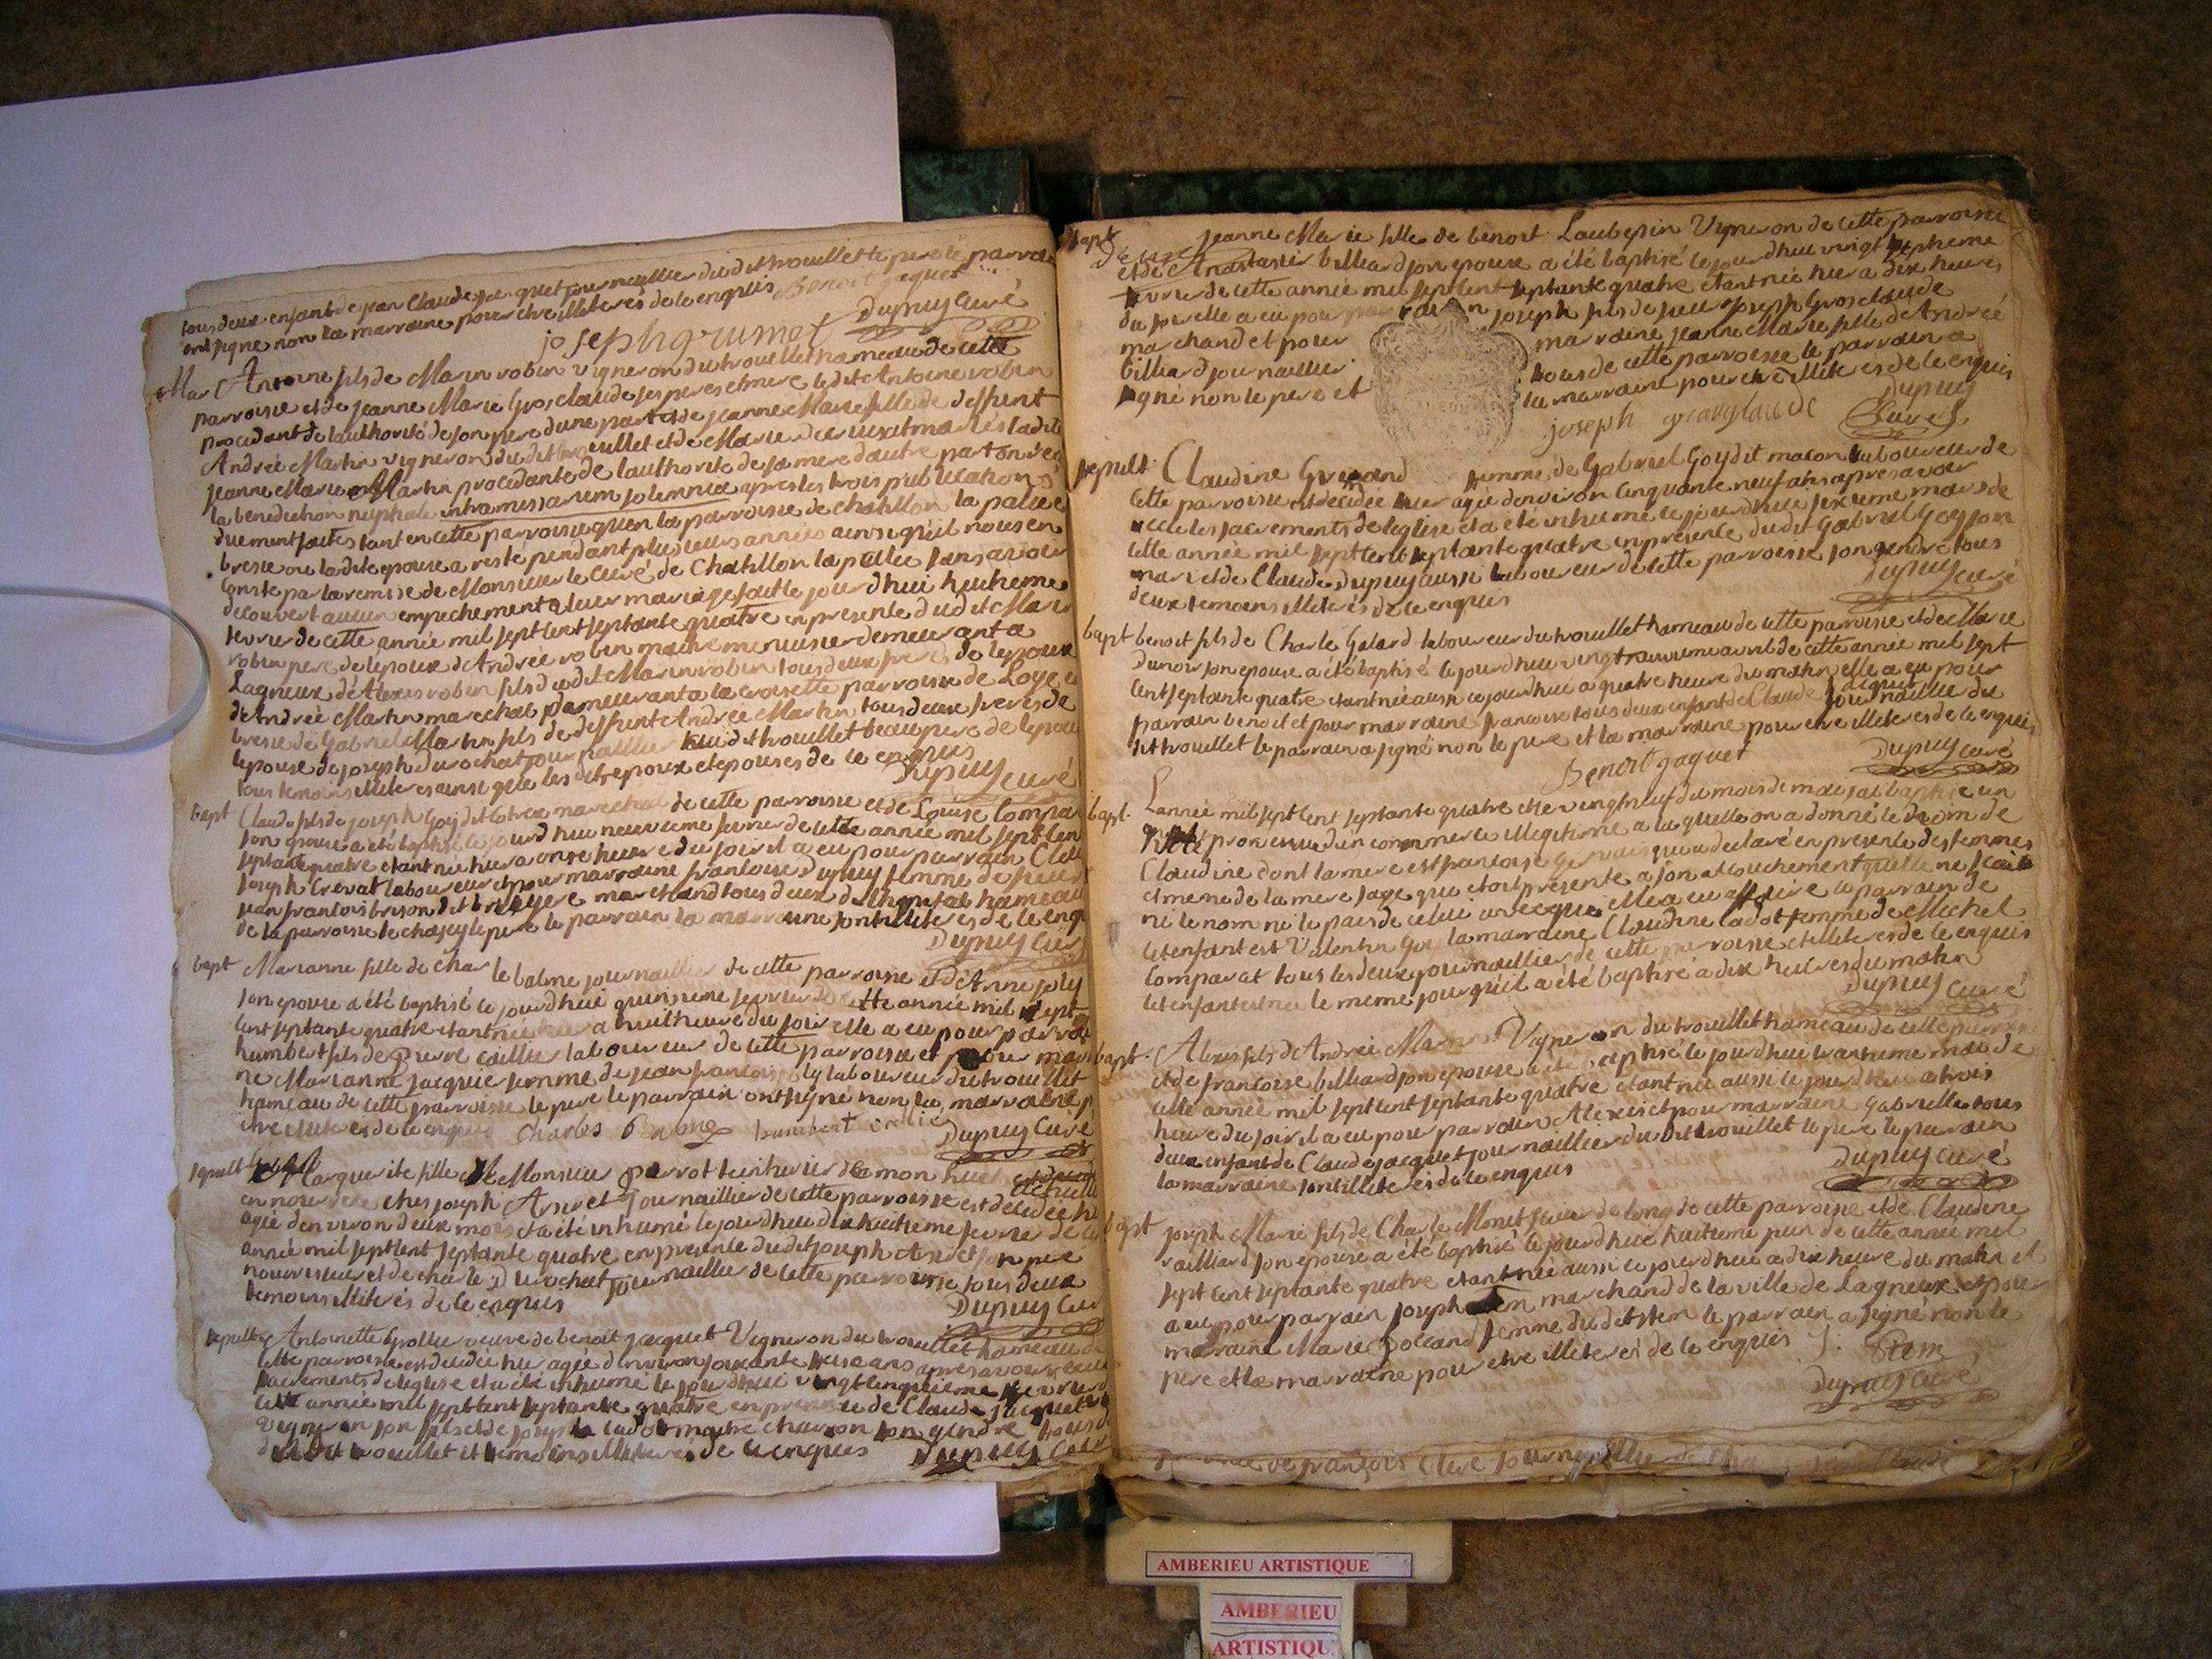 tous deux enfant de jean Claude jacquet journaillier du dit trouillet le pere le parrain
ont signé non la marraine pour etre illiterés de ce enquis Benoit jaquet
joseph grumet Dupuy Curé
Mar Antoine fils de Marin robin vigneron du trouillet hameau de cette
parroisse et de jeanne Marie Grosclaude ses pere et mere le dit Antoine robin
procedant de lauthorité de son pere dune part et de jeanne Marie fille de deffunt
Andrée Martin vigneron du dit trouillet et de Marie mariés la dite
jeanne Marie Martin procedante de lauthorité de sa mere dautre part on reçu
la benediction nuptiale intra missarum solemnia apres les trois publications
duement faites tant en cette parroisse quen la parroisse de chatillon la palue
bresse ou la dite epouse a resté pendant plusieurs années ainsi qu'il nous en
conste par la remise de Monsieur le Curé de Chatillon la pallue sans avoir
decouvert aucun empechement a leur mariage fait le jour d'hui huitieme
fevrier de cette année mil sept cent septante quatre en presence du dit Marin
robin pere de lepoux d'Andrée robin maitre menuisier demeurant a
Lagnieux d'Alexis robin fils du dit Marin robin tous deux freres de lepoux
d'Andrée Martin marechal demeurant a la croisette parroisse de Loye
bresse de Gabriel Martin fils de deffunt Andrée Martin tous deux freres de
lepouse de joseph Durochat journaillier du dit trouillet beaupere de lepouse
tous temoins illiterés ainsi que les dits epoux et epouses de ce enquis
Dupuy curé
bapt Claude fils de joseph Goy dit marechal de cette parroisse et de Louise Comparat
son epouse a été baptisé le jourd'hui neuvieme fevrier de cette année mil sept cent
septante quatre etant née hier a onze heure du soir il a eu pour parrain Claude
joseph Crevat laboureur et pour marraine francoise Dupuy femme de sieur
jean francois brison dit bruyere marchand tous deux de lhopital hameau
de la parroisse le chasey le pere le parrain la marraine sont illiterés de ce enquis
Dupuy Curé
bapt Marianne fille de charle balme journaillier de cette parroisse et d'Anne joly
son epouse a été baptisé le jourd'hui quinsieme fevrier de cette année mil sept
cent septante quatre etant née hier a huit heure du soir elle a eu pour parrain
humbert fils de pierre caillier laboureur de cette parroisse et pour marrai
ne Marianne jacquie femme de jean francois joly laboureur du trouillet
hameau de cette parroisse le pere le parrain ont signé non la marraine p
etre illiterés de ce enquis Charles Balme humbert caillie Dupuy Curé
sepult Marguerite fille de Monsieur parrot teinturier
en nourrice ches joseph Arvet journaillier de cette parroisse est decedée hier
agée denviron deux mois et a été inhumé le jourd'hui dix huitieme fevrier de cette
année mil sept cent septante quatre en presence du dit joseph Arvet son pere
nourrisseur et de charle Durochat journaillier de cette parroisse tous deux
temoins illiterés de ce enquis Dupuy Curé
sepult Antoinette Grollier veuve de benoit jacquet Vigneron du trouillet hameau de
cette parroisse est decedée hier agée d'environ soixante treise ans apres avoir reçu
sacrements de leglise et a été inhumé le jourd'hui vingt cinquieme fevrier de
cette année mil sept cent septante quatre en presence de Claude jacquet
vigneron son fils et de joseph cadot maitre charron son gendre tous
du dit trouillet et temoins illiterés de ce enquis Dupuy Curé
bapt jeanne Marie fille de benoit Laubepin Vigneron de cette parroisse
et de Anastasie billiard son epouse a été baptisé le jourd'hui vingt septieme
fevrier de cette année mil sept cent septante quatre etant née hier a dix heures
du soir elle a eu pour parrain joseph fils de feu joseph Grosclaude
marchand et pour marraine jeanne Marie fille de Andrée
billiard journaillier tous de cette parroisse le parrain a
signé non le pere et la marraine pour etre illiterés de ce enquis
joseph grauglaude Dupuy Curé
sepult Claudine Grumand femme de Gabriel Goy dit macon laboureur de
cette parroisse est decedée hier agée denviron cinquante neuf ans apres avoir
reçu les sacrements de leglise et a été inhumé le jourd'hui sexieme mars de
cette année mil sept cent septante quatre en presence du dit Gabriel Goy son
mari et de Claude Dupuy aussi laboureur de cette parroisse son gendre tous
deux temoins illiterés de ce enquis Dupuy curé
bapt benoit fils de Charle Galard laboureur du trouillet hameau de cette parroisse et de Marie
Dunoir son epouse a été baptisé le jourd'hui vingt avril de cette année mil sept
cent septante quatre etant née aussi ce jourd'hui a quatre heure du matin elle a eu pour
parrain benoit et pour marraine francoise tous deux enfant de Claude jaquet journaillier du
dit trouillet le parrain a signé non le pere et la marraine pour etre illiterés de ce enquis
Benoit jaquet Dupuy curé
bapt Lannée mil sept cent septante quatre et le vingt neuf du mois de mai jai baptisé un
provenue d'un commerce illegitime a laquelle on a donné le nom de
Claudine dont la mere est francoise Gervais qui a declaré en presence des femmes
et meme de la mere sage qui etoit presente a son accouchement quelle ne scait
ni le nom ni le pais de celui avec qui elle a eu affaire le parrain de
cet enfant est Valentin Goy la marraine Claudine Cadot femme de Michel
Comparat tous les deux journaillier de cette parroisse et illiterés de ce enquis
cet enfant est née le meme jour qu'il a été baptisé a dix heures du matin
Dupuy curé
bapt Alexis fils d'Andrée Vigneron du trouillet hameau de cette parroisse
et de francoise billiard son epouse a été baptisé le jourd'hui trantieme mai de
cette année mil sept cent septante quatre etant née aussi le jourd'hui a trois
heure du soir il a eu pour parrain Alexis et pour marraine Gabrielle tous
deux enfant de Claude jacquet journaillier du dit trouillet le pere le parrain
la marraine sont illiterés de ce enquis Dupuy curé
bapt joseph Marie fils de Charle Monet scieur de long de cette parroisse et de Claudine
railliard son epouse a été baptisé le jourd'hui huitieme juin de cette année mil
sept cent septante quatre etant née aussi ce jourd'hui a dix heure du matin il
a eu pour parrain joseph stem marchand de la ville de Lagnieux et pour
marraine Marie femme du dit stem le parrain a signé non le
pere et la marraine pour etre illiterés de ce enquis J. Stem
Dupuy Curé
de francois journaillier
AMBERIEU ARTISTIQUE
AMBERIEU
ARTISTIQU